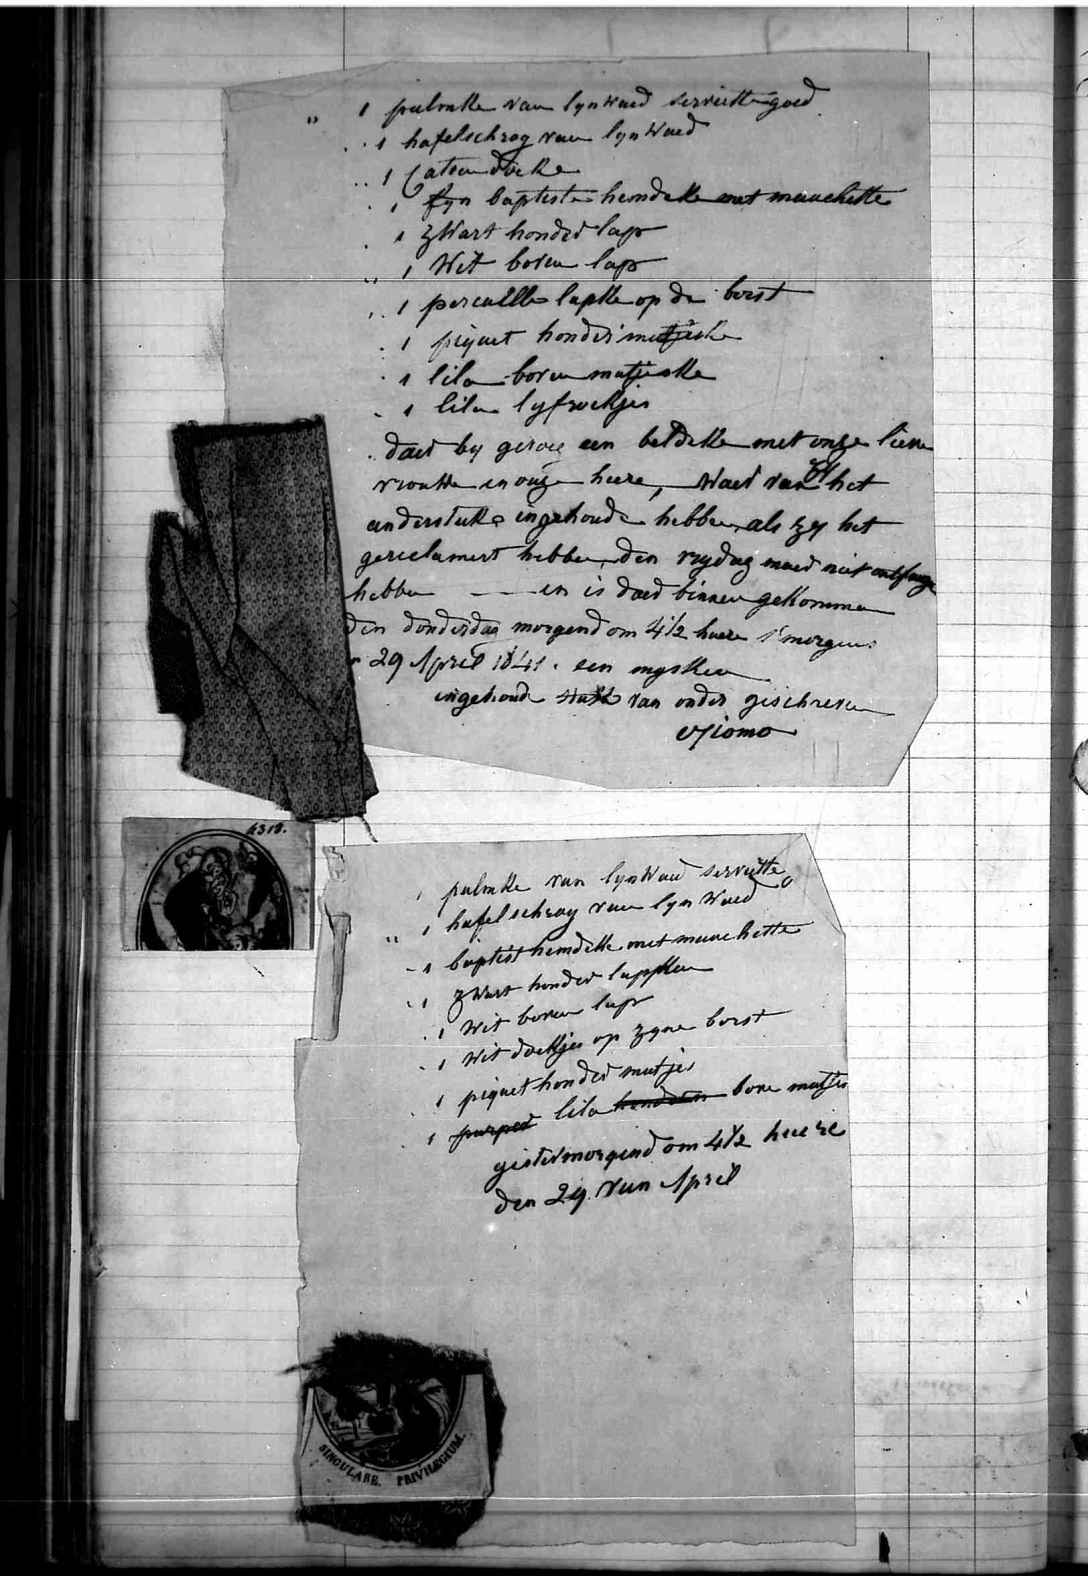 " 1 pulmke van lynwaed serviette goed
1 hafelschrog van lynwaed
1 Caton doeke
1 fyn baptiste hemdeke met manchette
1 zwart honder lap
1 Wit boven lap
1 percaelle lapke op de borst
1 piquet honder mutjeske
1 lila boven mutjeske
1 lila lyfrockjes
daer by gevoeg een beldeke met onze lieve
vrouke en onze heere, Waer van zy het
anderstuk ingehoude hebben, als zy het
gereclameert hebben, den vrydag maer niet ontfange
hebben — en is daer binnen gekommen
den donderdag morgend om 4 1/2 heure s'morgens
29 April 1841. een mysken
ingehoude stuk van onder geschreven
1 pulmke van lynwaed serviette
" 1 hafelschrog van lynwaed
1 baptist hemdeke met manchette
1 zwart honder lappken
1 Wit boven lap
1 Wit doekjes op zyne borst
1 piquet honder mutjes
1 lila bove mutjes
gister morgend om 4 1/2 heure
den 29 van April
4318.
SINGULARE. PRIVILEGIUM.